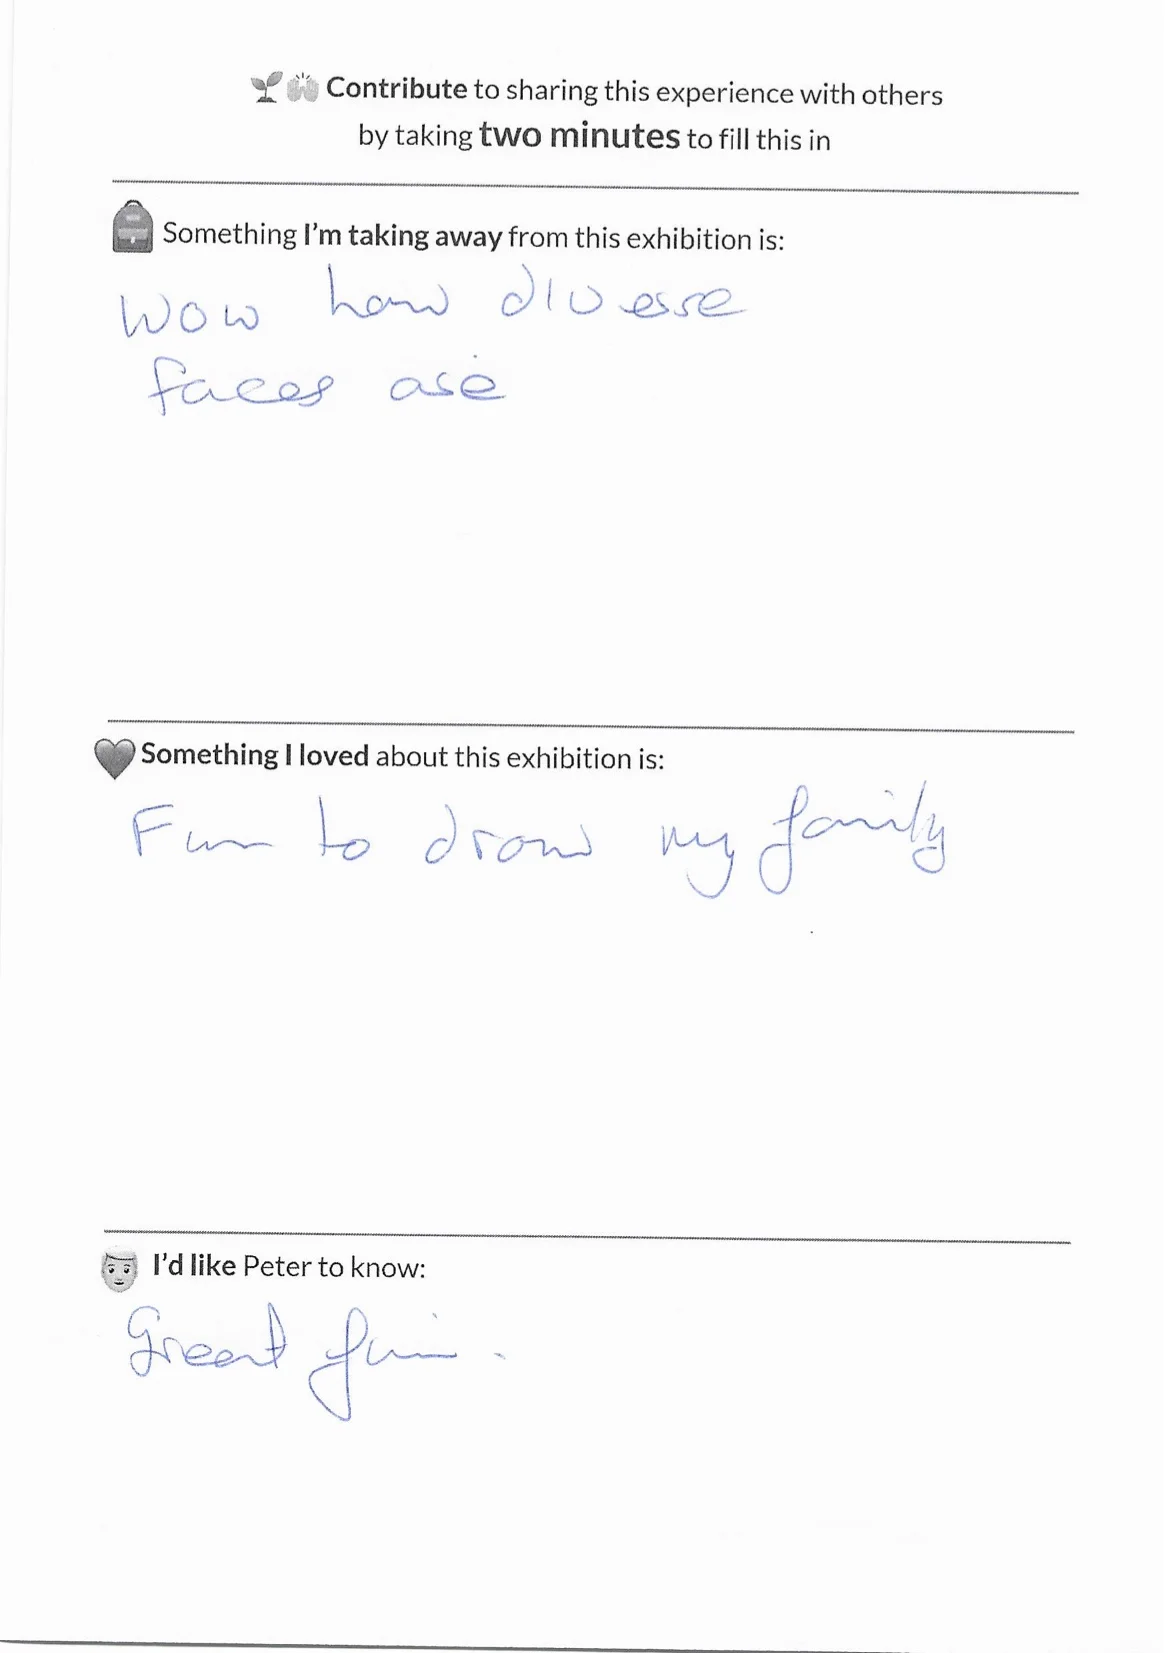 Contribute to sharing this experience with others
by taking two minutes to fill this in
Something I'm taking away from this exhibition is:
Wow how diverse
faces are
Something I loved about this exhibition is:
Fun to draw my family
I'd like Peter to know:
Great fun.